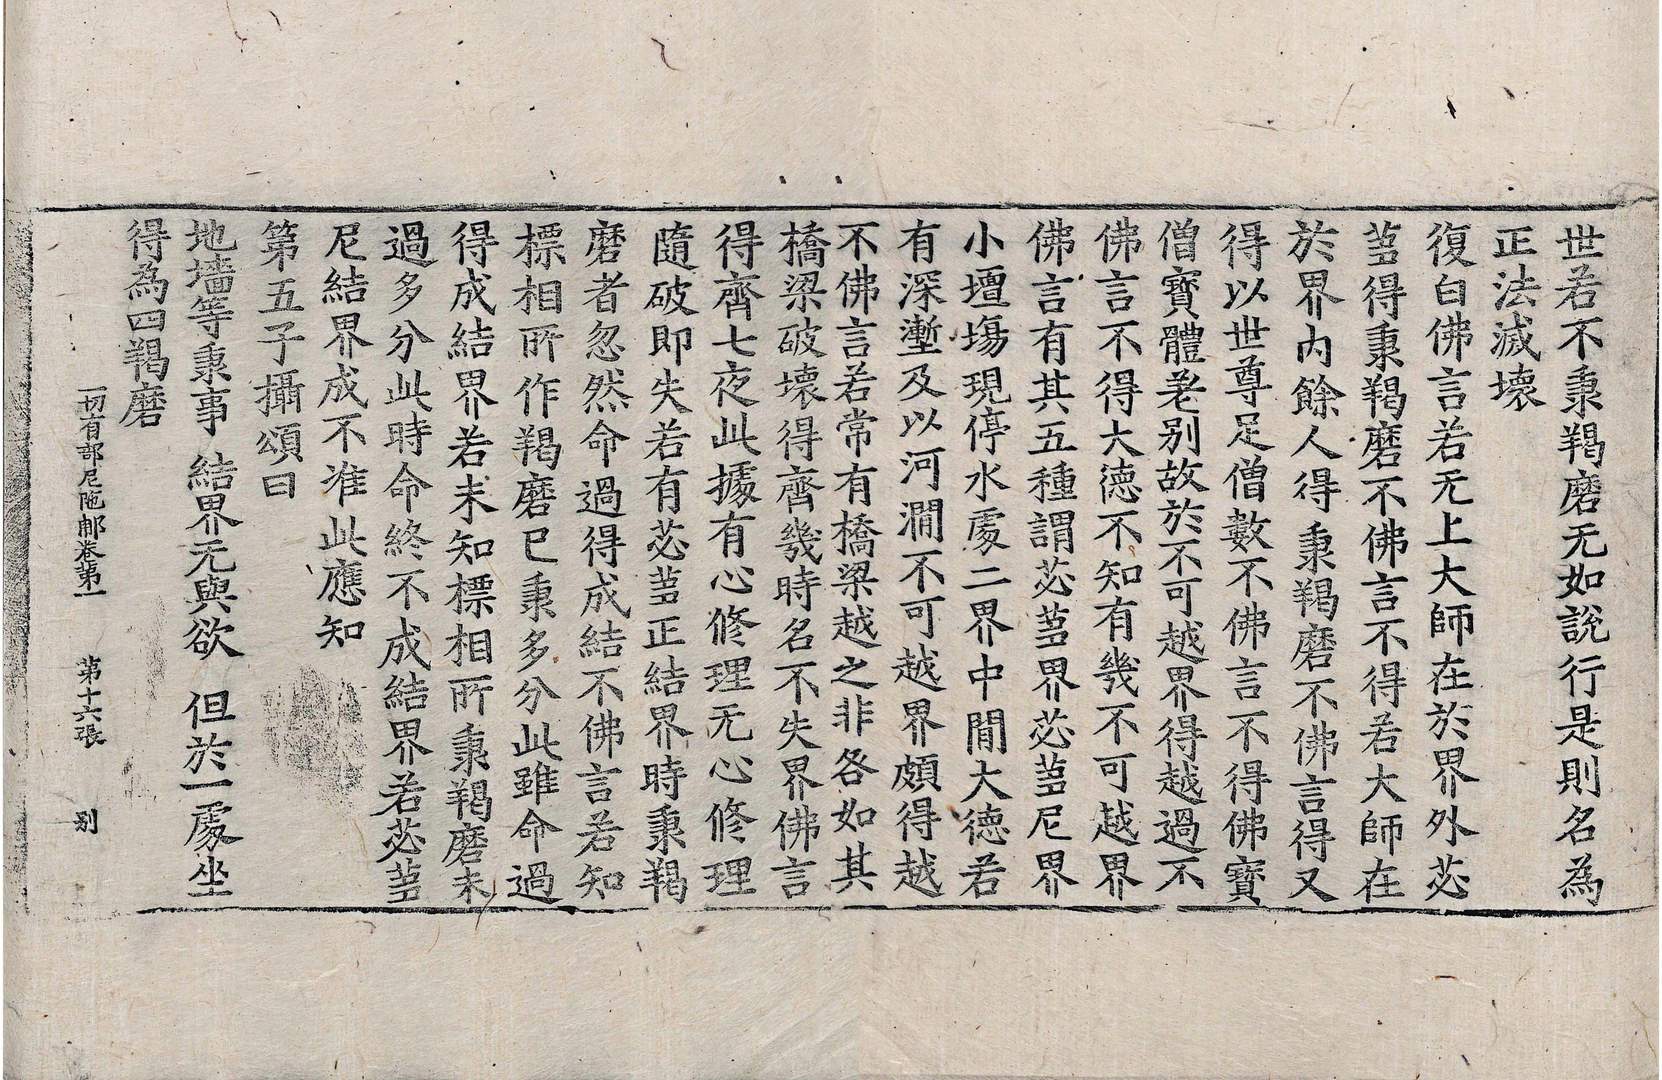 世若不秉羯磨无如說行是則名為
正法滅壞
復白佛言若无上大師在於界外苾
蒭得秉羯磨不佛言不得若大師在
於界內餘人得秉羯磨不佛言得又
得以世尊足僧數不佛言不得佛寶
僧寶體羌別故於不可越界得越過不
佛言不得大德不知有幾不可越界
佛言有其五種謂苾蒭界苾蒭尼界
小壇場現停水處二界中間大德若
有深壍及以河澗不可越界頗得越
不佛言若常有橋梁越之非咎如其
橋梁破壞得齊幾時名不失界佛言
得齊七夜此據有心修理无心修理
隨破即失若有苾蒭正結界時秉羯
磨者忽然命過得成結不佛言若知
標相所作羯磨已秉多分此雖命過
得成結界若未知標相所秉羯磨未
過多分此時命終不成結界若苾蒭
尼結界成不准此應知
第五子攝頌曰
地墻等秉事 結界无與欲 但於一處坐
得為四羯磨
一切有部尼陁那卷第一 第十六張 别